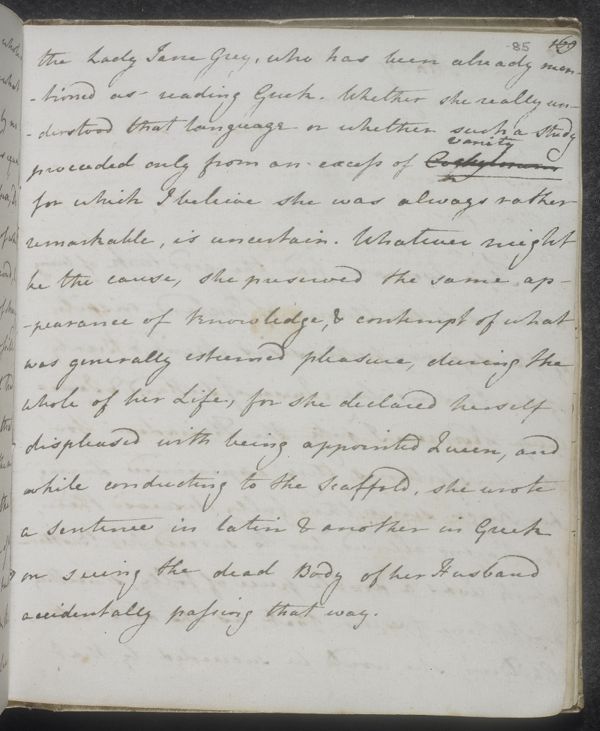 85 169
the Lady Jane Grey, who has been already men-
-tioned as reading Greek. Whether she really un-
-derstood that language or whether such a study
vanity
proceeded only from an excess of
for which I believe she was always rather
remarkable, is uncertain. Whatever might
be the cause, she preserved the same ap-
-pearance of knowledge, & contempt of what
was generally esteemed pleasure, during the
whole of her Life, for she declared herself
displeased with being appointed Queen, and
while conducting to the Scaffold, she wrote
a sentence in latin & another in Greek
on seeing the dead Body of her Husband
accidentally passing that way.